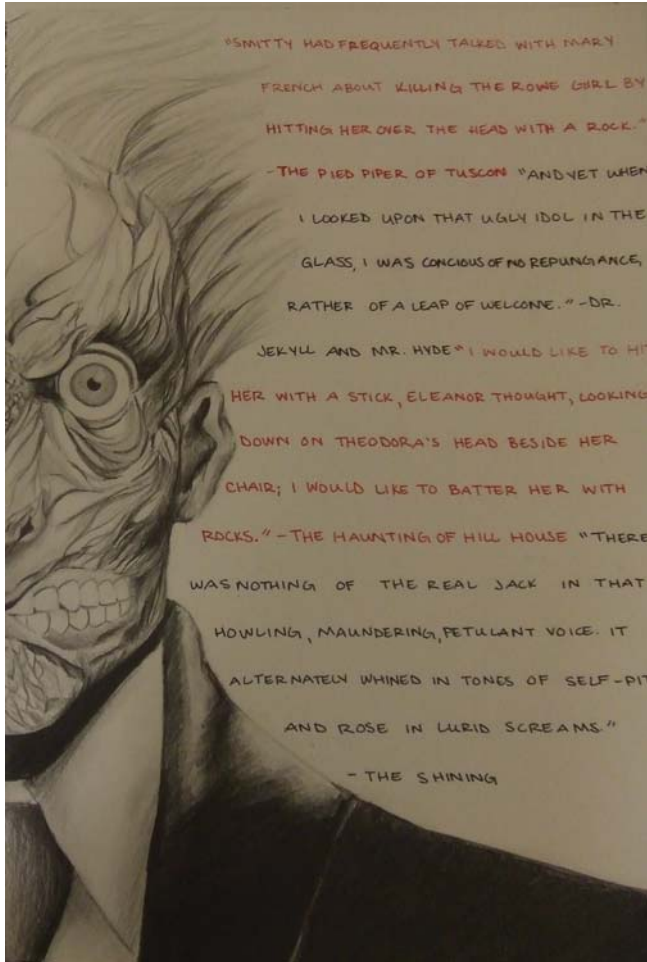 "SMITTY HAD FREQUENTLY TALKED WITH MARY
FRENCH ABOUT KILLING THE ROWE GIRL BY
HITTING HER OVER THE HEAD WITH A ROCK."
-THE PIED PIPER OF TUSCON "AND YET WHEN
I LOOKED UPON THAT UGLY IDOL IN THE
GLASS, I WAS CONCIOUS OF NO REPUNGANCE,
RATHER OF A LEAP OF WELCOME." -DR.
JEKYLL AND MR. HYDE "I WOULD LIKE TO HIT
HER WITH A STICK, ELEANOR THOUGHT, LOOKING
DOWN ON THEODORA'S HEAD BESIDE HER
CHAIR; I WOULD LIKE TO BATTER HER WITH
ROCKS." - THE HAUNTING OF HILL HOUSE "THERE
WAS NOTHING OF THE REAL JACK IN THAT
HOWLING, MAUNDERING, PETULANT VOICE. IT
ALTERNATELY WHINED IN TONES OF SELF-PIT
AND ROSE IN LURID SCREAMS."
- THE SHINING